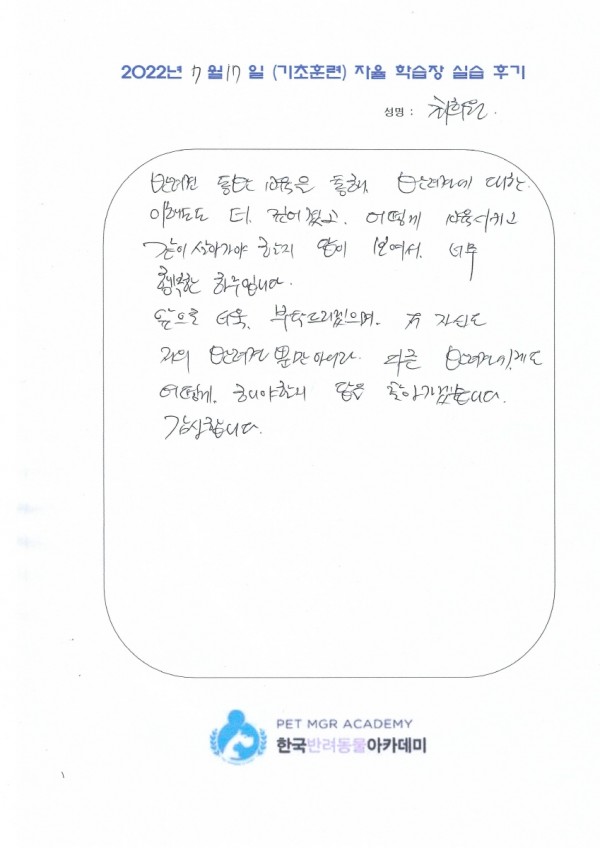 2022년 7월 17일 (기초훈련) 자율 학습장 실습 후기
성명 : 최희원.
반려견 동반 교육을 통해, 반려견에 대한
이해도도 더. 깊어졌고. 어떻게 교육시키고
같이 살아가야 하는지 답이 보여서. 너무
행복한 하루입니다.
앞으로 더욱, 부탁드리겠으며. 저 자신도
저의 반려견 뿐만아니라. 다른 반려견에게도
어떻게. 해야할지 답을 찾아가겠습니다.
감사합니다.
PET MGR ACADEMY
한국반려동물아카데미